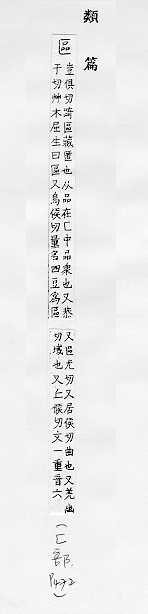 類篇
區
豈俱切踦區藏匿也从品在匸中品衆也又恭
于切艸木屈生曰區又烏侯切量名四豆爲區
又區尤切又居侯切曲也又羌幽
切域也又上侯切文一重音六
(匸部
P472)